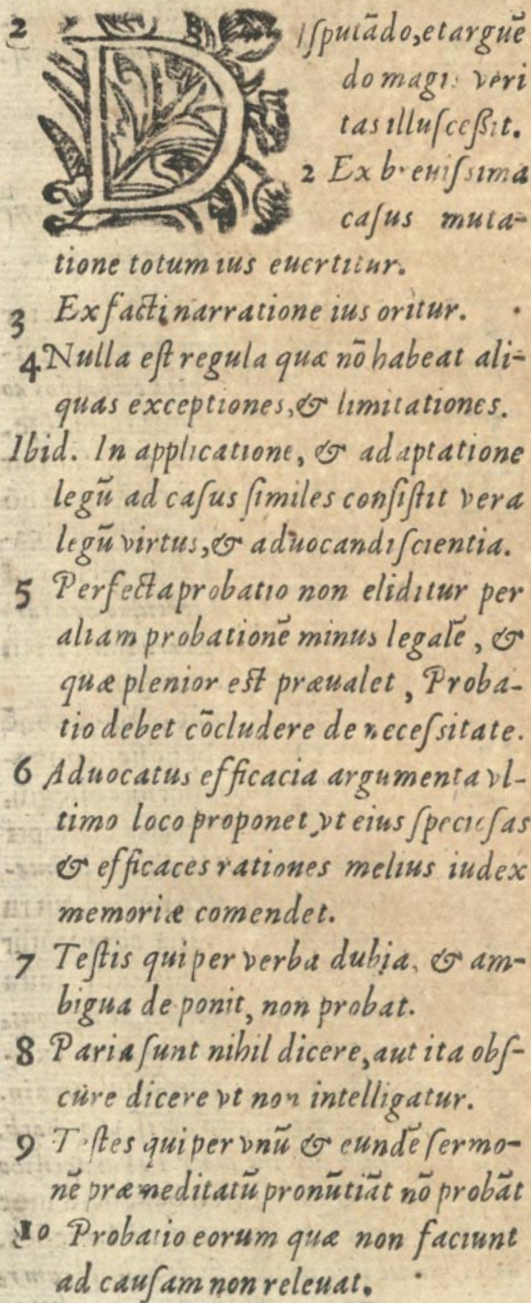 2 Disputãdo, et arguẽ
do magis veri
tas illuscessit.
2 Ex breuissima
casus muta-
tione totum ius euertitur.
3 Ex facti narratione ius oritur.
4 Nulla est regula quæ nõ habeat ali-
quas exceptiones, & limitationes.
Ibid. In applicatione, & adaptatione
legũ ad casus similes consistit vera
legũ virtus, & aduocandi scientia.
5 Perfecta probatio non eliditur per
aliam probationẽ minus legalẽ, &
quæ plenior est præualet, Proba-
tio debet cõcludere de necessitate.
6 Aduocatus efficacia argumenta vl-
timo loco proponet, vt eius speciosas
& efficaces rationes melius iudex
memoriæ comendet.
7 Testis qui per verba dubia, & am-
bigua deponit, non probat.
8 Paria sunt nihil dicere, aut ita obs-
cure dicere vt non intelligatur.
9 Testes qui per vnũ & eundẽ sermo-
nẽ præmeditatũ pronũtiãt nõ probãt
10 Probatio eorum quæ non faciunt
ad causam non releuat.